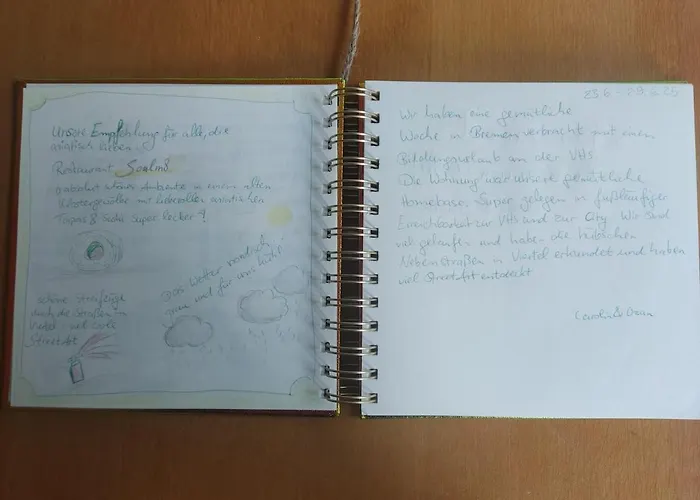 Unsere Empfehlung für alle, die
asiatisch lieben.
Restaurant
absolut schönes Ambiente in einem alten
Klostergewölbe mit liebevollen asiatischen
Tapas & Sushi super lecker!
Das Wetter
grau und für uns
schöne Streifzüge
durch die Straßen im
Viertel - viel coole
Streetart
23.6 - 29.6.25
Wir haben eine gemütliche
Woche in Bremen verbracht mit einem
Bildungsurlaub an der VHS.
Die Wohnung war unsere gemütliche
Homebase. Super gelegen in fußläufiger
Erreichbarkeit zur VHS und zur City. Wir sind
viel gelaufen und haben die hübschen
Nebenstraßen im Viertel erkundet und haben
viel Streetart entdeckt